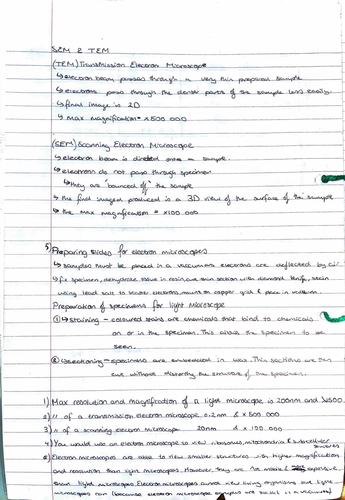 SEM & TEM
(TEM) Transmission Electron Microscope
↳ electron beam passes through a very thin prepared sample
↳ electrons pass through the denser parts of the sample less easily
↳ final image is 2D
↳ max magnification = x500 000
(SEM) Scanning Electron Microscope
↳ electron beam is directed onto a sample.
↳ electrons do not pass through specimen
↳ they are 'bounced off' the sample
↳ the final image produced is a 3D view of the surface of the sample
↳ the max magnification = x100 000
5) Preparing slides for electron microscopes
↳ samples must be placed in a vacuum as electrons are deflected by air
↳ fix specimen, dehydrate, tissue in resin, cut thin section with diamond knife, stain
using lead salt to scatter electrons, mount on copper grid & place in vacuum.
Preparation of specimens for light Microscope
① ↳ staining - coloured stains are chemicals that bind to chemicals
on or in the specimen. This allows the specimen to be
seen.
② Sectioning - specimens are embedded in wax. Thin sections are then
cut without distorting the structure of the specimen.
1) Max resolution and magnification of a light microscope is 200nm and x1500.
2) " of a transmission electron microscope 0.2nm & x500 000
3) " of a scanning electron microscope 20nm & x100 000
4) You would use an electron microscope to view ribosomes, mitochondria & subcellular
structures
5) Electron microscopes are able to view smaller structures with higher magnification
and resolution than light microscopes. However they are expensive
than light microscopes. Electron microscopes cannot view living organisms but light
microscopes can (because electron microscope samples are in a vacuum)